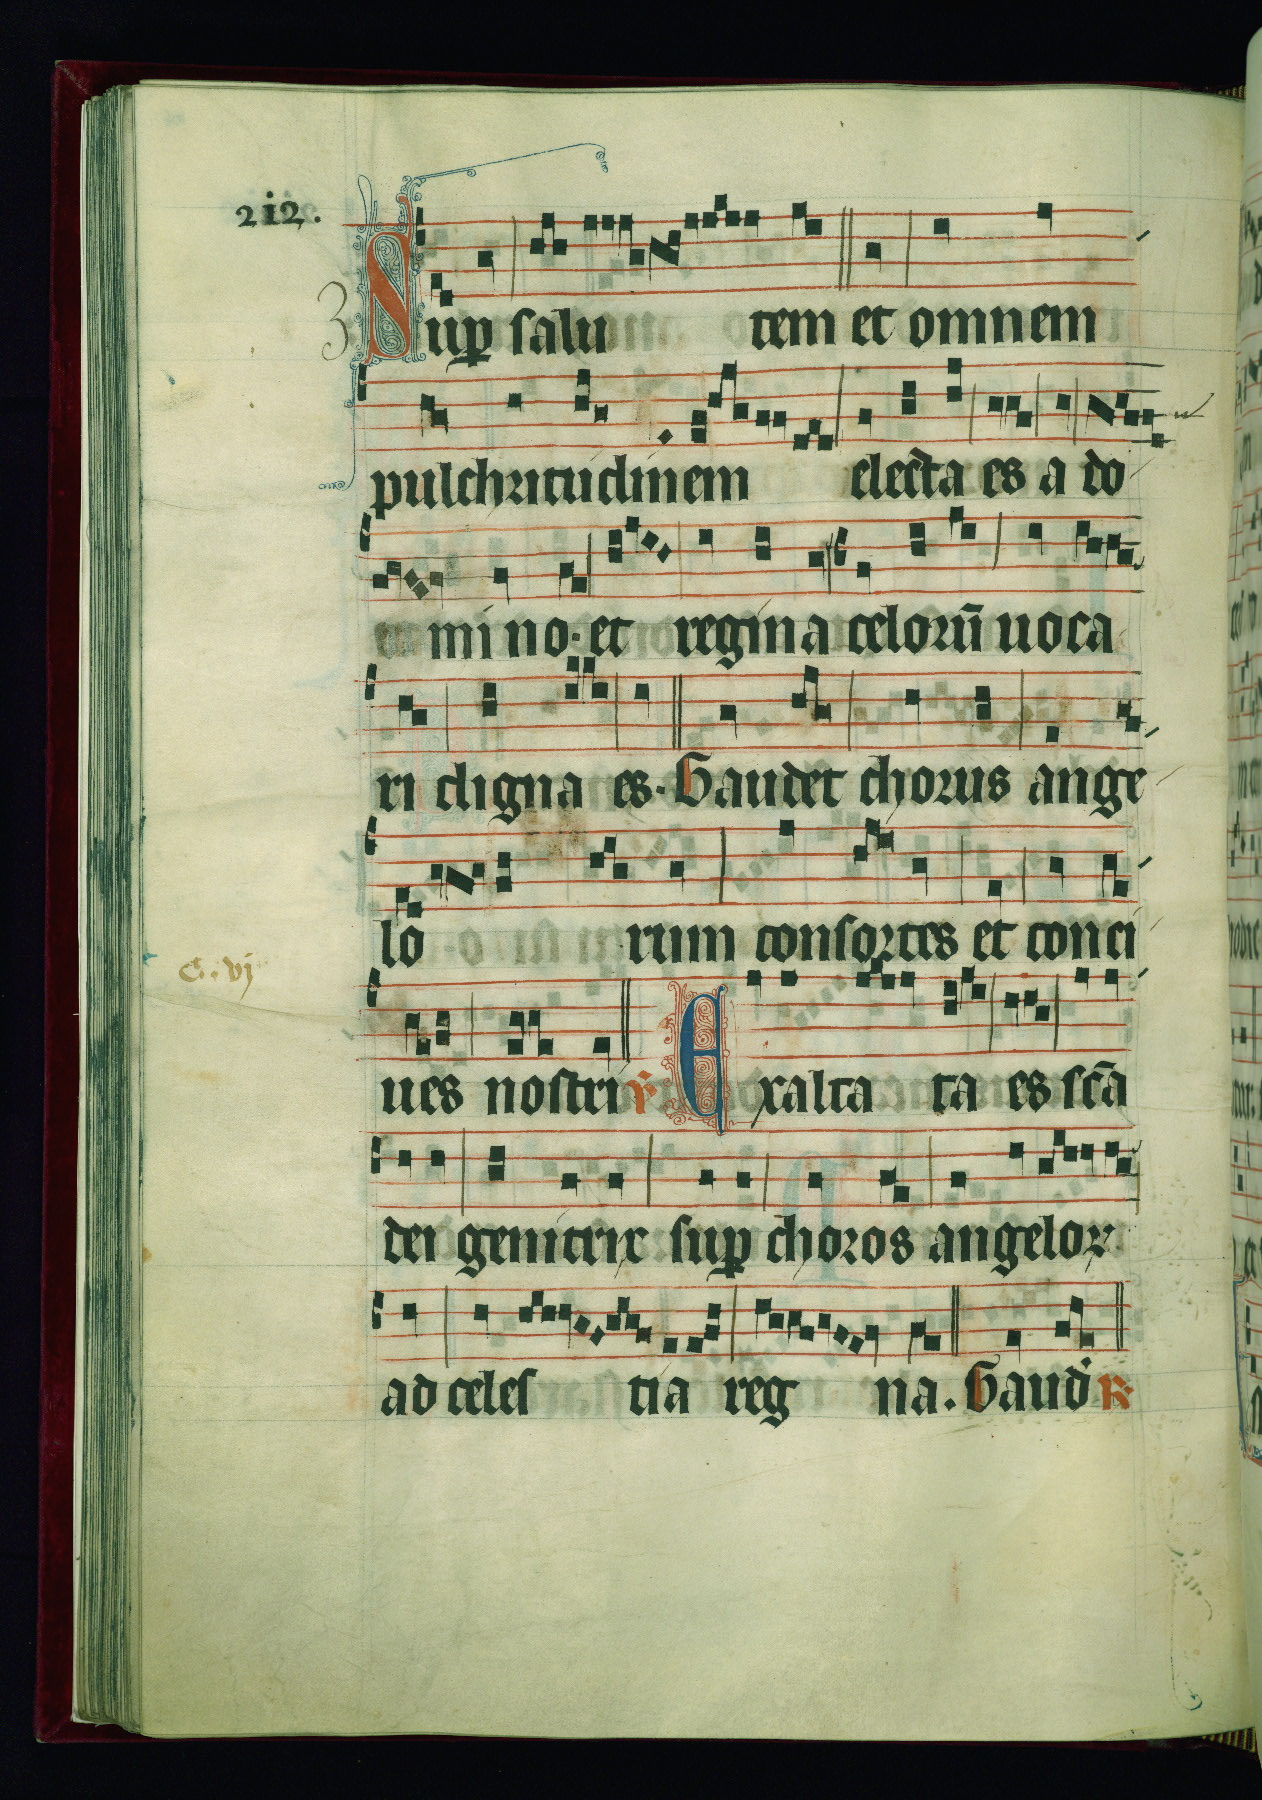 212.
3
Sup salu tem et omnem
pulchritudinem electa es a do
mino. et regina celorū uoca
ri digna es. Gaudet chorus ange
lo rum consortes et conci
C. vj
ues nostri ℣ Exalta ta es scā
dei genitrix sup choros angeloꝝ
ad celes tia reg na. Gaud ℟